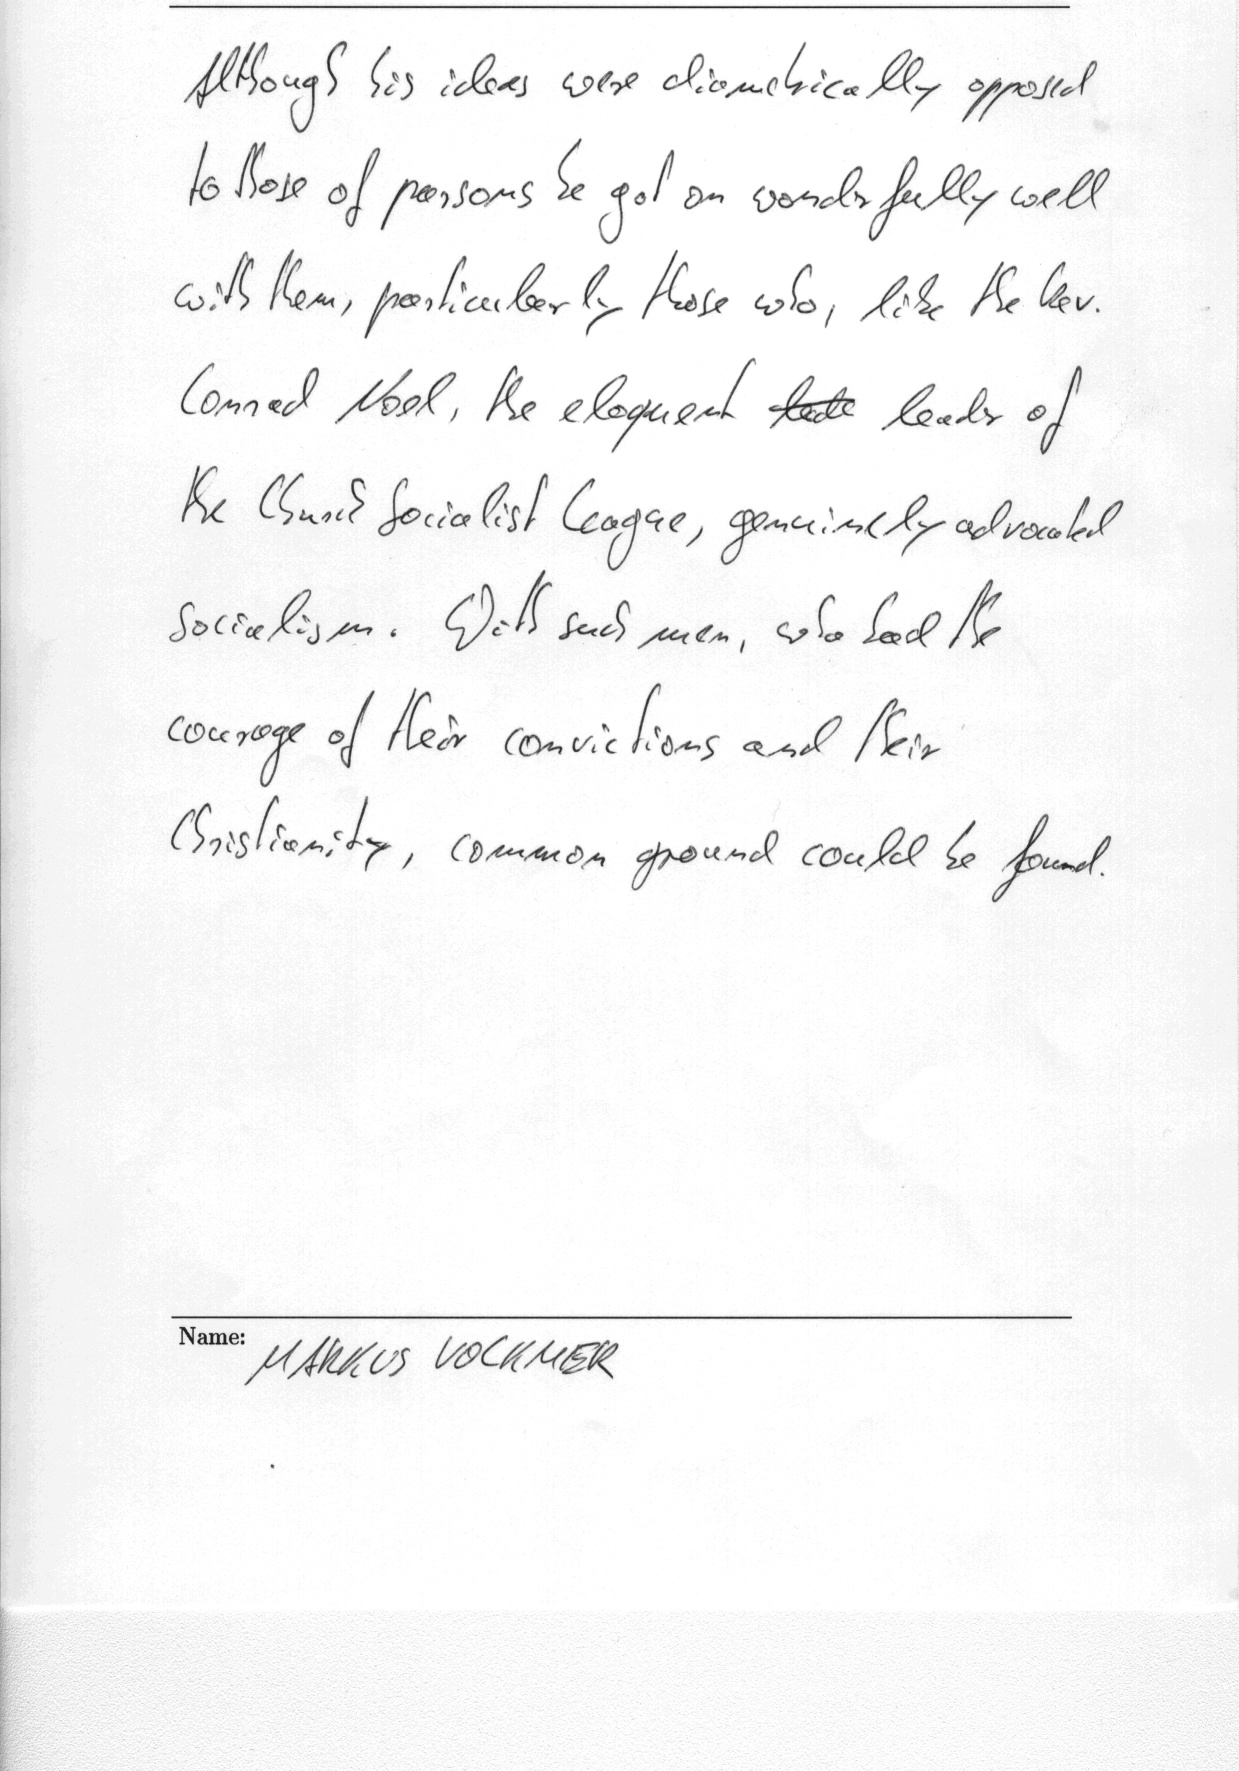 Although his ideas were diametrically opposed
to those of parsons he got on wonderfully well
with them, particularly those who, like the Rev.
Conrad Noel, the eloquent leader of
the Church Socialist League, genuinely advocated
socialism. With such men, who had the
courage of their convictions and their
Christianity, common ground could be found.
Name:
MARKUS VOCKMER